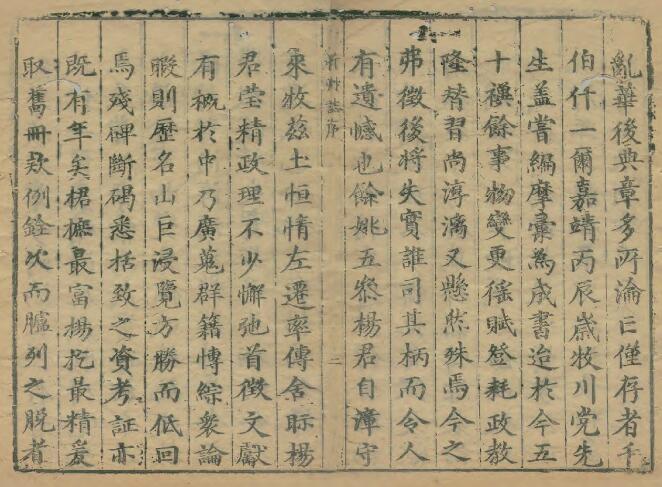 亂華後典章多所淪亡僅存者千
伯什一爾嘉靖丙辰歲牧川党先
生盖嘗編摩彙為成書迨於今五
十禩餘事物變更徭賦登耗政教
隆替習尚淳漓又懸然殊焉今之
弗徵後將失實誰司其柄而令人
有遺憾也餘姚五泰楊君自漳守
蔚州誌序
二
來牧茲土恒情左遷率傳舍眎楊
君瑩精政理不少懈弛首徵文獻
有概於中乃廣蒐群籍愽綜衆論
暇則歷名山巨浸覽方勝而低回
焉殘碑斷碣悉括致之資考証亦
既有年矣桾摭最富楊扢最精爰
取舊冊欵例銓次而臚列之脱者